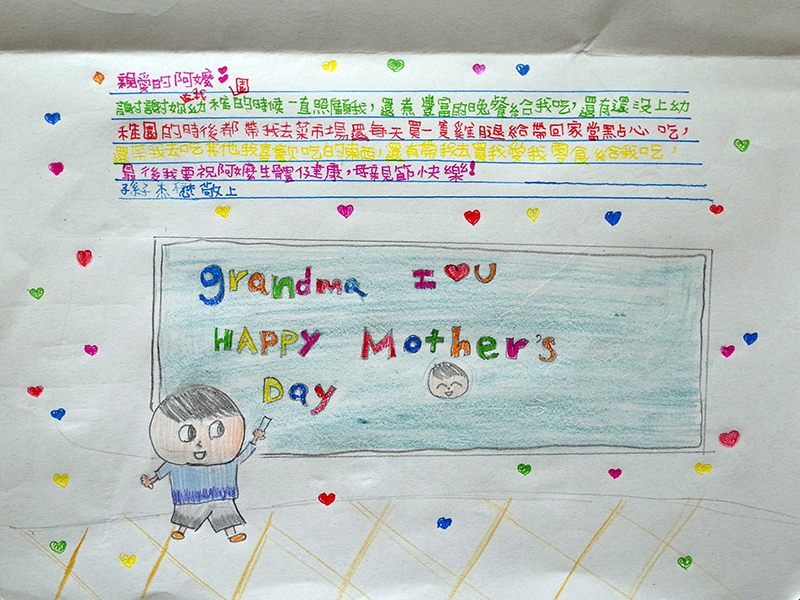 親愛的阿嬤
謝謝妳在我幼稚園的時候一直照顧我，還煮豐富的晚餐給我吃，還有還沒上幼
稚園的時後都帶我去菜市場還每天買一隻雞腿給帶回家當點心吃，
還帶我去吃其他我喜歡吃的東西，還有帶我去買我愛我零食給我吃，
最後我要祝阿嬤生體健康，母親節快樂！
孫子杰敬上
grandma I ♥ U
HAPPY Mother's
Day